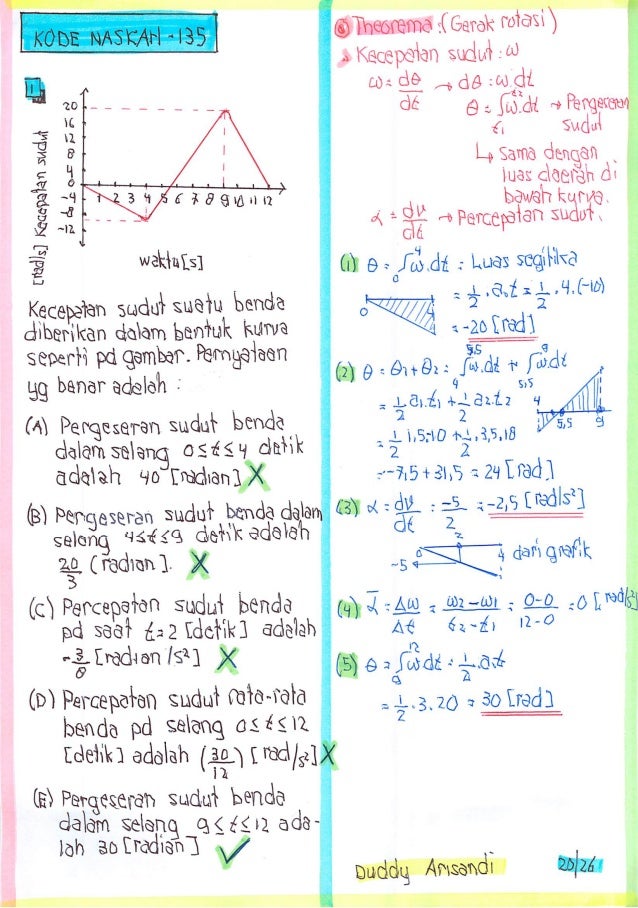 KODE NASKAH - 135
1
[rad/s] Kecepatan sudut
20
16
12
8
4
0
-4
-8
-12
1 2 3 4 5 6 7 8 9 10 11 12
waktu [s]
Kecepatan sudut suatu benda
diberikan dalam bentuk kurva
seperti pd gambar. Pernyataan
yg benar adalah :
(A) Pergeseran sudut benda
dalam selang 0≤t≤4 detik
adalah 40 [radian] X
(B) Pergeseran sudut benda dalam
selang 4≤t≤9 detik adalah
20/3 (radian]. X
(C) Percepatan sudut benda
pd saat t=2 [detik] adalah
-3/8 [radian/s²] X
(D) Percepatan sudut rata-rata
benda pd selang 0≤t≤12
[detik] adalah (30/12) [rad/s²] X
(E) Pergeseran sudut benda
dalam selang 9≤t≤12 ada-
lah 30 [radian] ✓
Theorema : (Gerak rotasi)
Kecepatan sudut : ω
ω = dθ/dt → dθ = ω.dt
θ = ∫ω.dt → Pergeseran
t1 t2 sudut
↳ sama dengan
luas daerah di
bawah kurva.
α = dv/dt → Percepatan sudut.
(1) θ = ₀∫⁴ω.dt = Luas segitiga
0 4
= 1/2 .a.t = 1/2 .4.(-10)
= -20 [rad]
(2) θ = θ1 + θ2 = ₄∫⁵'⁵ω.dt + ₅,₅∫⁹ω.dt
= 1/2 a1.t1 + 1/2 a2.t2
4 5,5 9
= 1/2 1,5.10 + 1/2 .3,5.18
= -7,5 + 31,5 = 24 [rad]
(3) α = dv/dt = -5/2 = -2,5 [rad/s²]
2
-5
4
dari grafik
(4) α̅ = Δω/Δt = ω2-ω1/t2-t1 = 0-0/12-0 = 0 [rad/s²]
(5) θ = ₉∫¹²ω dt = 1/2 .a.t
= 1/2 .3.20 = 30 [rad]
Duddy Arisandi
20/26